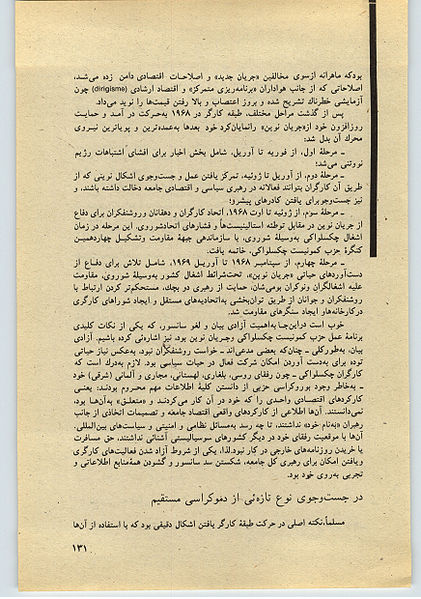 بودکه ماهرانه ازسوی مخالفین «جریان جدید» و اصلاحات اقتصادی دامن زده می‌شد،
اصلاحاتی که از جانب هواداران «برنامه‌ریزی متمرکز» و اقتصاد ارشادی (dirigisme) چون
آزمایشی خطرناک تشریح شده و بروز اعتصاب و بالا رفتن قیمت‌ها را نوید می‌داد.
پس از گذشت مراحل مختلف، طبقه کارگر در ۱۹۶۸ به‌حرکت در آمد و حمایت
روزافزون خود از«جریان نوین» رانمایان‌کرد خود بعدها به‌عمده‌ترین و پویاترین نیروی
محرک آن بدل شد:
ـ مرحلهٔ اول، از فوریه تا آوریل، شامل بخش اخبار برای افشای اشتباهات رژیم
نووتنی می‌شد؛
ـ مرحلهٔ دوم، از آوریل تا ژوئیه، تمرکز یافتن عمل و جست‌وجوی اشکال نوینی که از
طریق آن کارگران بتوانند فعالانه در رهبری سیاسی و اقتصادی جامعه دخالت داشته باشند، و
نیز جست‌وجوبرای یافتن کادرهای پیشرو؛
ـ مرحلهٔ سوم، از ژوئیه تا اوت ۱۹۶۸، اتحاد کارگران و دهقانان وروشنفکران برای دفاع
از جریان نوین در مقابل توطئه استالینیست‌ها و فشارهای اتحادشوروی. این مرحله در زمان
اشغال چکسلواکی به‌وسیلهٔ شوروی، با سازماندهی جبههٔ مقاومت وتشکیل چهاردهمین
کنگرهٔ حزب کمونیست چکسلواکی، خاتمه یافت.
ـ مرحلهٔ چهارم، از سپتامبر ۱۹۶۸ تا آوریل ۱۹۶۹، شامل تلاش برای دفاع از
دست‌آوردهای حیاتی «جریان نوین»، تحت‌شرائط اشغال کشور به‌وسیلهٔ شوروی، مقاومت
علیه اشغالگران ونوکران بومی‌شان، حمایت از رهبری دو بچک، مستحکم‌تر کردن ارتباط با
روشنفکران و جوانان از طریق توان‌بخشی به‌اتحادیه‌های مستقل و ایجاد شوراهای کارگری
درکارخانه‌هاو ایجاد سنگرهای مقاومت شد.
خوب است دراین‌جابه‌اهمیت آزادی بیان و لغو سانسور، که یکی از نکات کلیدی
برنامهٔ عمل حزب کمونیست چکسلواکی وجریان نوین بود، نیز اشاره‌ئی کرده باشیم. آزادی
بیان، به‌طورکلی ـ چنان‌که بعضی مدعی‌اند ـ خواست روشنفکران نبود، به‌عکس نیاز حیاتی
توده برای به‌دست آوردن امکان شرکت فعال در حیات سیاسی بود. لازم به‌درک است که
کارگران چکسلواکی ـ چون رفقای روسی، بلغاری، لهستانی، مجاری و آلمانی (شرقی) خود
ـ به‌خاطر وجود بوروکراسی حزبی از دانستن کلیهٔ اطلاعات مهم محروم بودند: یعنی
کارکردهای اقتصادی واحدی را که خود در آن کار می‌کردند و «متعلق» به‌آن‌ها بود،
نمی‌دانستند. آن‌ها اطلاعی از کارکردهای واقعی اقتصاد جامعه و تصمیمات اتخاذی از جانب
رهبران «به‌نام خود» نداشتند، تا چه رسد به‌مسائل نظامی و امنیتی و سیاست‌های بین‌المللی.
آن‌ها با موقعیت رفقای خود در دیگر کشورهای سوسیالیستی آشنائی نداشتند، حق مسافرت
یا خریدن روزنامه‌های خارجی در کار نبود.لذا، یکی از شروط آزاد شدن فعالیت‌های کارگری
ویافتن امکان برای رهبری کل جامعه، شکستن سد سانسور و گشودن همهٔ‌منابع اطلاعاتی و
تجربی به‌روی خود بود.
در جست‌وجوی نوع تازه‌ئی از دموکراسی مستقیم
مسلماً،نکته اصلی در حرکت طبقهٔ کارگر یافتن اشکال دقیقی بود که با استفاده از آن‌ها
۱۳۱